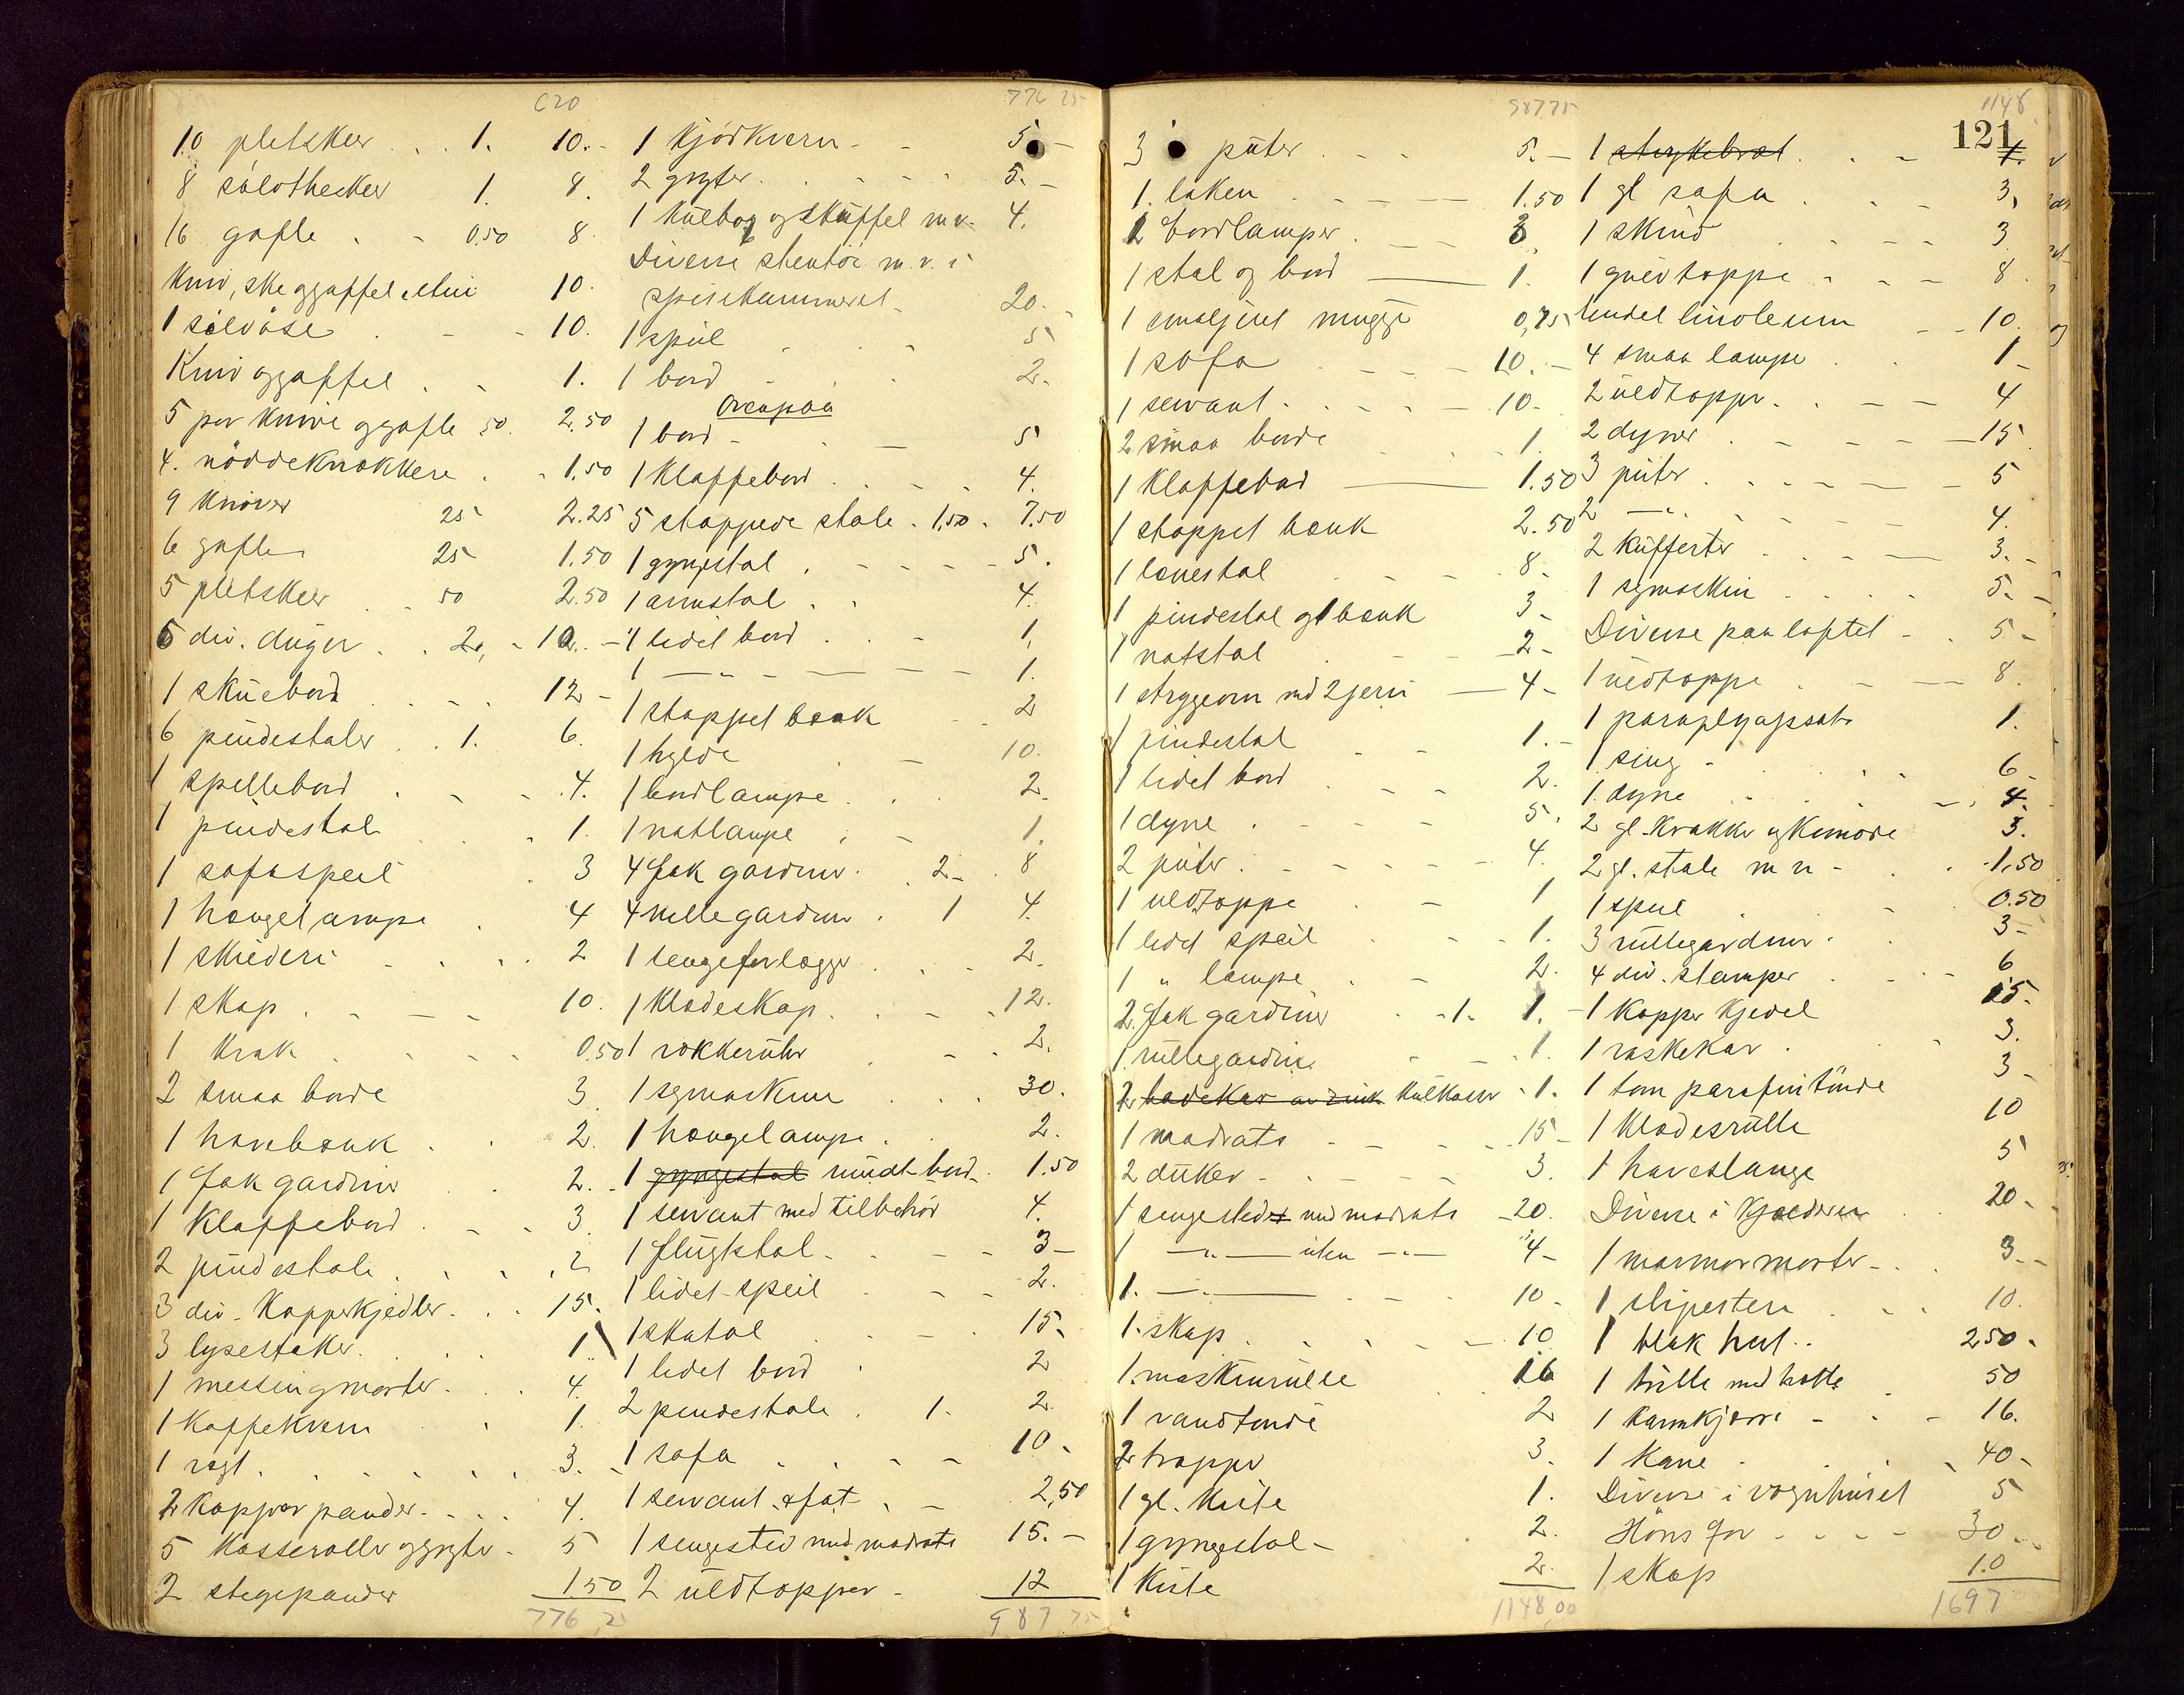 620
10 pletskeer . . 1. 10.-
8 sölotheskeer 1. 8.
16 gafle . - 0,50 8.
Kniv, ske og gaffel i etui 10.
1 sölvöse . - - 10.
Kniv og gaffel . - 1.
5 par knive og gafle 50. 2.50
4. nöddeknekkere . - 1,50
9 kniver 25 2.25
6 gafler 25 1.50
5 pletskeer . . 50 2.50
5 div. duger . . 2., - 10. -
1 skuebord . . . 12 -
6 pindestoler . . 1. 6.
1 spillebord . - - 4.
1 pindestol . . 1.
1 sofaspeil . 3
1 hængelampe . 4
1 skilderi - . . . 2
1 skap . - - - 10.
1 krak . - - - 0.50
2 smaa borde 3.
1 havebænk . . 2.
1 fak gardiner . . 2. -
1 Klappebord . - - 3.
2 pindestole . . . . 2
3 div. Kopperkjedler . . . 15.
3 lysestaker . . . . 1
1 messingmorter . . . 4.
1 Kaffekvern . . 1.
1 vegt . . . . . . . 3. -
2 kopper pander . - . . 4.
5 Kasseroller og gryter - 5
2 stegepander 1.50
776,25
776 25
1 Kjödkvern - - 5 -
2 gryter . . . - - - 5. -
1 Kulboks og skuffel m.v. 4.
Diverse stentöi m.v. i
spisekammeret - 20. -
1 speil . . . 5
1 bord - . . 2.
Ovenpaa
1 bord - . - 5
1 Klappebord . . . - . 4.
5 stoppede stole . 1,50 . 7.50
1 gyngestol . - - - - 5.
1 armstol . . 4.
1 lidet bord . . - 1,
1 - " - - - - 1.
1 stoppet bænk . . 2
1 hylde . - 10.
1 bordlampe . . . 2.
1 natlampe . - 1.
4 fak gardiner . . 2 - . 8
4 rullegardiner . 1 4.
1 sengeforlægger . . . 2.
1 Klædeskap . . - . 12.
1 rokkeruhr . - . 2.
1 symaskine . . . 30.
1 hængelampe . . 2.
1 gyngestol rundt bord - 1.50
1 servant med tilbehör 4.
1 flugtstol - . - - 3 -
1 lidet speil . - - 2.
1 skatol . . - . 15.
1 lidet bord . 2
2 pindestole . 1. 2.
1 sofa . . . - - 10 -
1 servant & fat - . - 2,50
1 sengested med madrats 15. -
2 uldtepper - 12
987 75
987.75
3 puter . - - 5. -
1. laken . - - - - 1.50
2 bordlamper . - - 3
1 stol og bord —— 1.
1 emaljeret mugge 0,75
1 sofa . - - - 10. -
1 servant - . - . - 10 -
2 smaa borde . - . 1.
1 Klappebord —— 1.50
1 stoppet bænk 2.50
1 lænestol . - . 8.
1 pindestol og 1 bænk 3 -
1 natstol . - - 2 -
1 strygeovn med 2 jern — 4 -
1 pindestol . - - 1. -
1 lidet bord . - - 2.
1 dyne . - . - - 5.
2 puter . - - - - - 4.
1 uldteppe . - 1
1 lidet speil . - . 1.
1 " lampe . - 2.
2. fak gardiner . . 1. 1. -
1. rullegardin . - - 1.
2 badekar av zink Kulkasser - 1.
1 madrats - - - - - 15 -
2 duker - - - - - - 3.
1 sengested med madrats - 20.
1 — " — uten — " — 4 -
1. - " —— . - - - 10 -
1. skap . . . . - - 10
1. maskinrulle . . 16
1 vandtönde 2
2 trapper 3.
1 gl. Kiste 1.
1 gyngestol - 2.
1 Kiste 2.
1148 00
1148
121
1 strykebræt . . - 1.
1 gl sofa . . - 3,
1 skind . . - - - 3
1 gulvteppe - . - - 8
Endel linoleum - - 10.
4 smaa lampe . . 1 -
2 uldtepper . . - - 4
2 dyner . - - - - 15
3 puter . . . - - - - 5
2 — " - . - - - - 4.
2 Kufferter . . . - — 3. -
1 symaskin . . . . . 5. -
Diverse paa loftet - . 5 -
1 uldteppe . . - — 8.
1 paraplyopsats 1.
1 seng - . . . - 6 -
1. dyne . . . - . 4.
2 gl. Krakker og Komode 3.
2 gl. stole m v - . . 1,50
1 speil . . - 0.50
3 rullegardiner . . 3 -
4 div. stamper . . - - 6
1 Kopper Kjedel 15.
1 vaskekar . . - 3.
1 tom parafintönde 3 -
1 Klædesrulle 10
1 haveslange 5
Diverse i Kjælderen . 20 -
1 marmormorter - . . 3 - -
1 slipesten . . . 10.
1 blak hest . . 250 -
1 trille med hotte . 50
1 Karmkjærre - - - 16.
1 Kane . . . . 40 -
Diverse i vognhuset 5
Höns for - - - - 30 - -
1 skap 1.0
1697